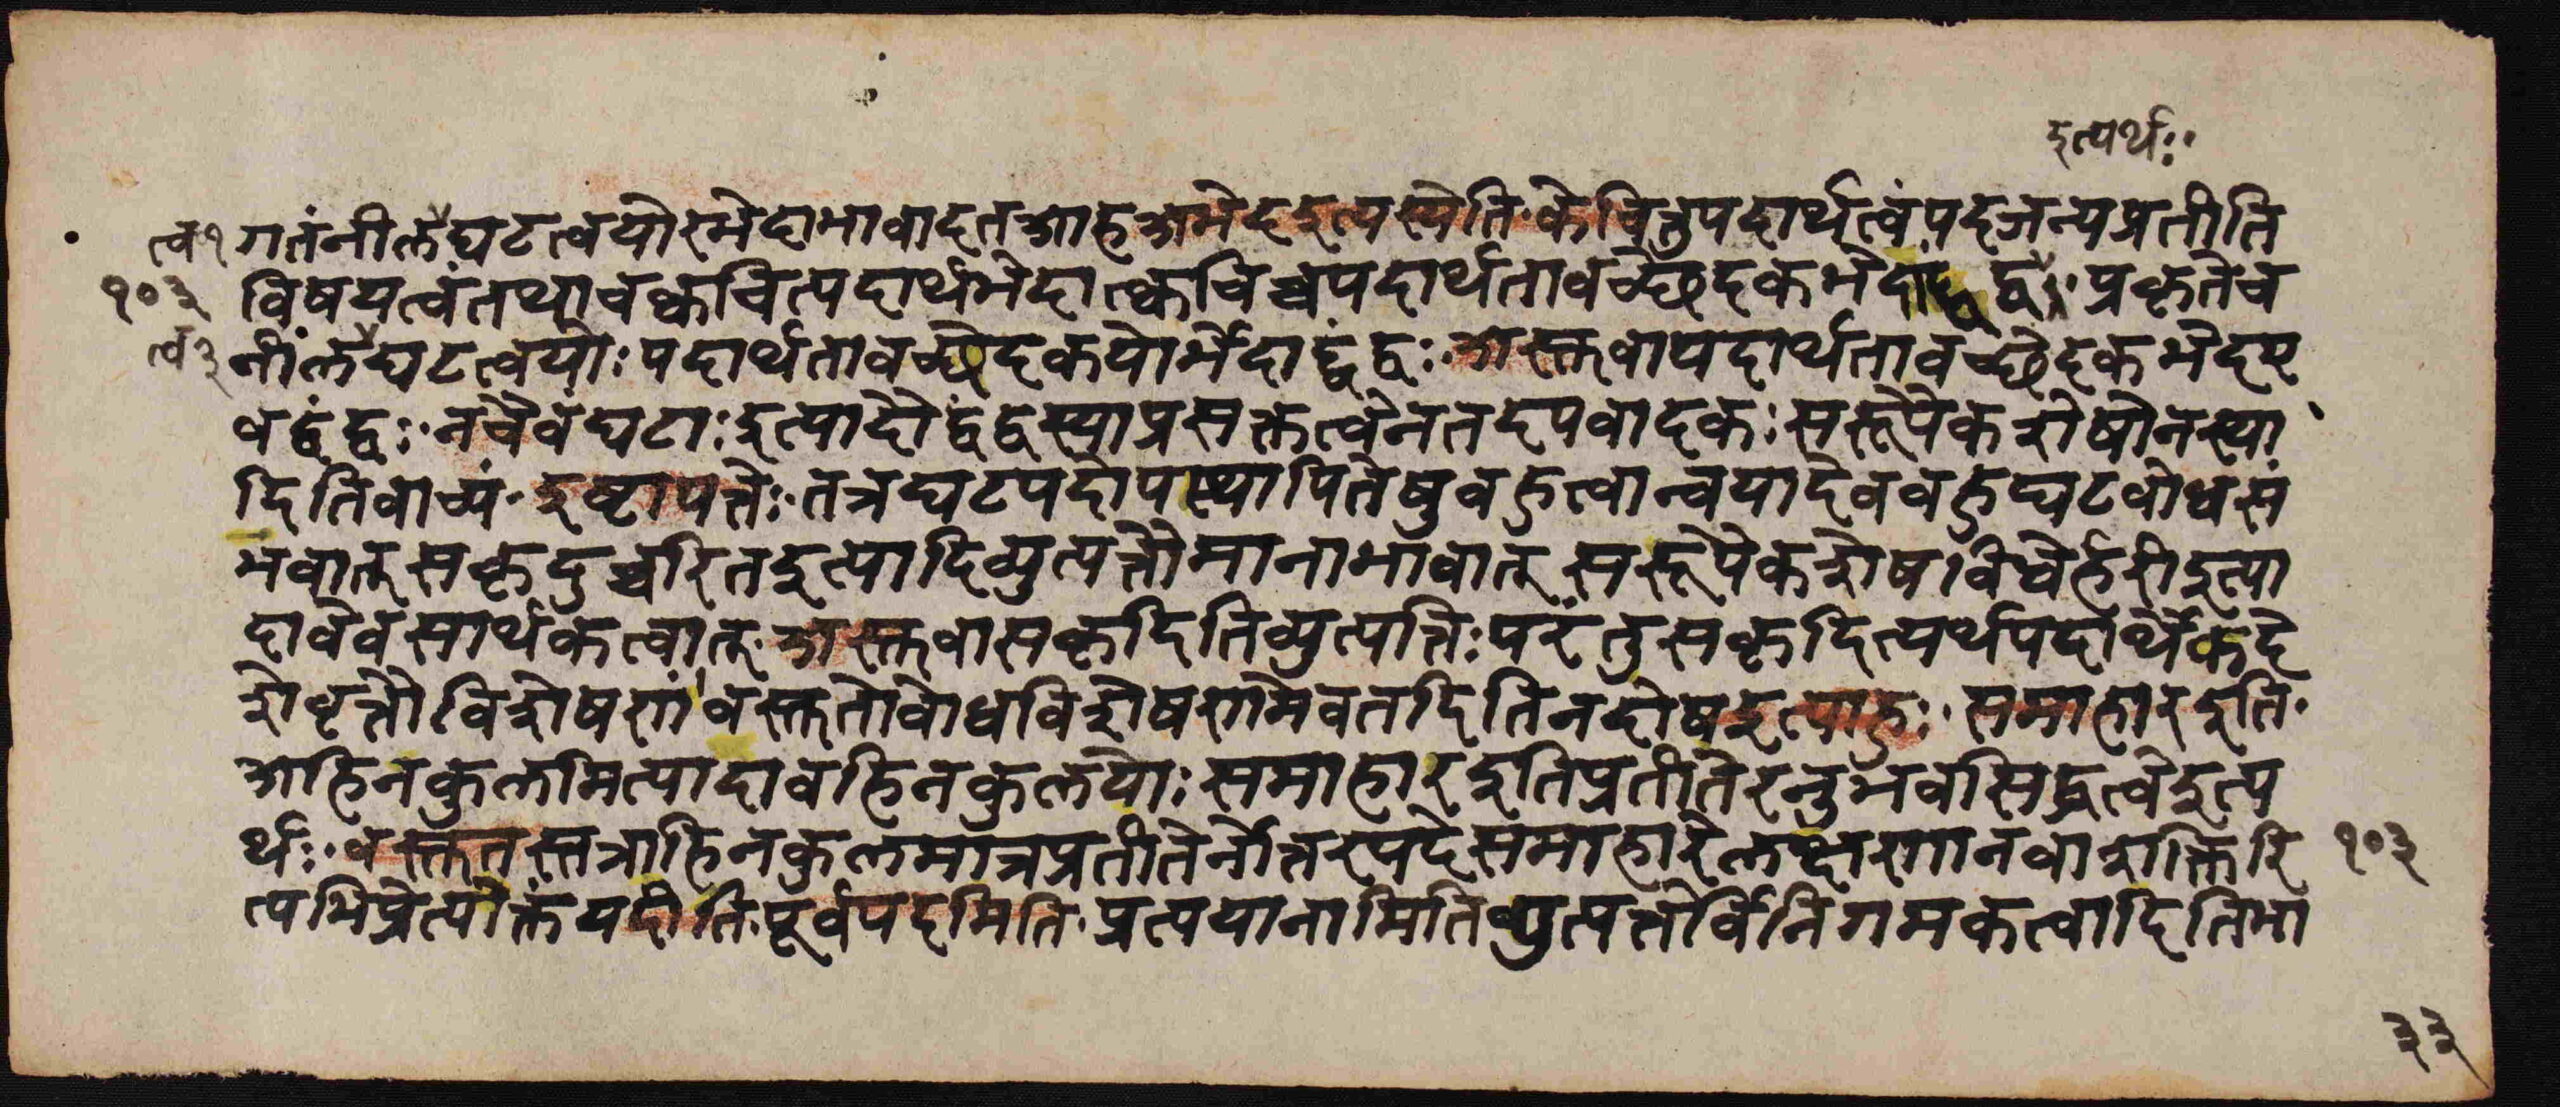 इत्यर्थः॰
त्व१ गतंनीलघटत्वयोरभेदाभावादतआहअभेदइत्यस्येति॰केचित्तुपदार्थत्वंपदजन्यप्रतीति
१०३ विषयत्वंतथाचक्वचित्पदार्थभेदात्क्वचिच्चपदार्थतावच्छेदकभेदाद्द्वंद्वः॰प्रकृतेच
त्व३ नीलघटत्वयोःपदार्थतावच्छेदकयोर्भेदाद्द्वंद्वः॰अस्तुवापदार्थतावच्छेदकभेदए
वद्वंद्वः॰नचैवंघटाःइत्यादौद्वंद्वस्याप्रसक्तत्वेनतदपवादकःसरूपैकशेषोनस्या
दितिवाच्यं॰इष्टापत्तेः॰तत्रघटपदोपस्थापितेषुबहुत्वान्वयादेवबहुघटबोधसं
भवात्सकृदुच्चरितइत्यादिव्युत्पत्तौमानाभावात्सरूपैकशेषविधेर्हरीइत्या
दावेवसार्थकत्वात्॰अस्तुवासकृदितिव्युत्पत्तिःपरंतुसकृदित्यर्थपदार्थैकदे
शेवृत्तौविशेषणंवस्तुतोबोधविशेषणमेवतदितिनदोषइत्याहुः॰समाहारइति॰
अहिनकुलमित्यादावहिनकुलयोःसमाहारइतिप्रतीतेरनुभवसिद्धत्वेइत्य
र्थः॰वस्तुतस्तत्राहिनकुलमात्रप्रतीतेर्नोत्तरपदेसमाहारेलक्षणानवाशक्तिरि १०३
त्यभिप्रेत्योक्तंयदीति॰पूर्वपदमिति॰प्रत्ययानामितिव्युत्पत्तेर्विनिगमकत्वादितिभा
३३